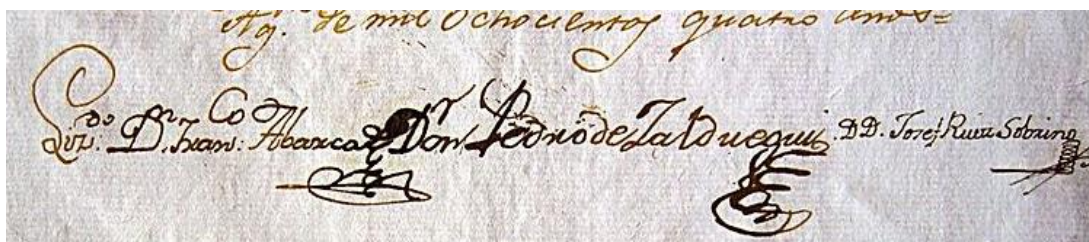 Ag.to de mil Ochocientos quatro años=
Liz.do D.n Fran.co Abarca Don Pedro de Zalduegui D.D. Josef Ruiz Sobrino